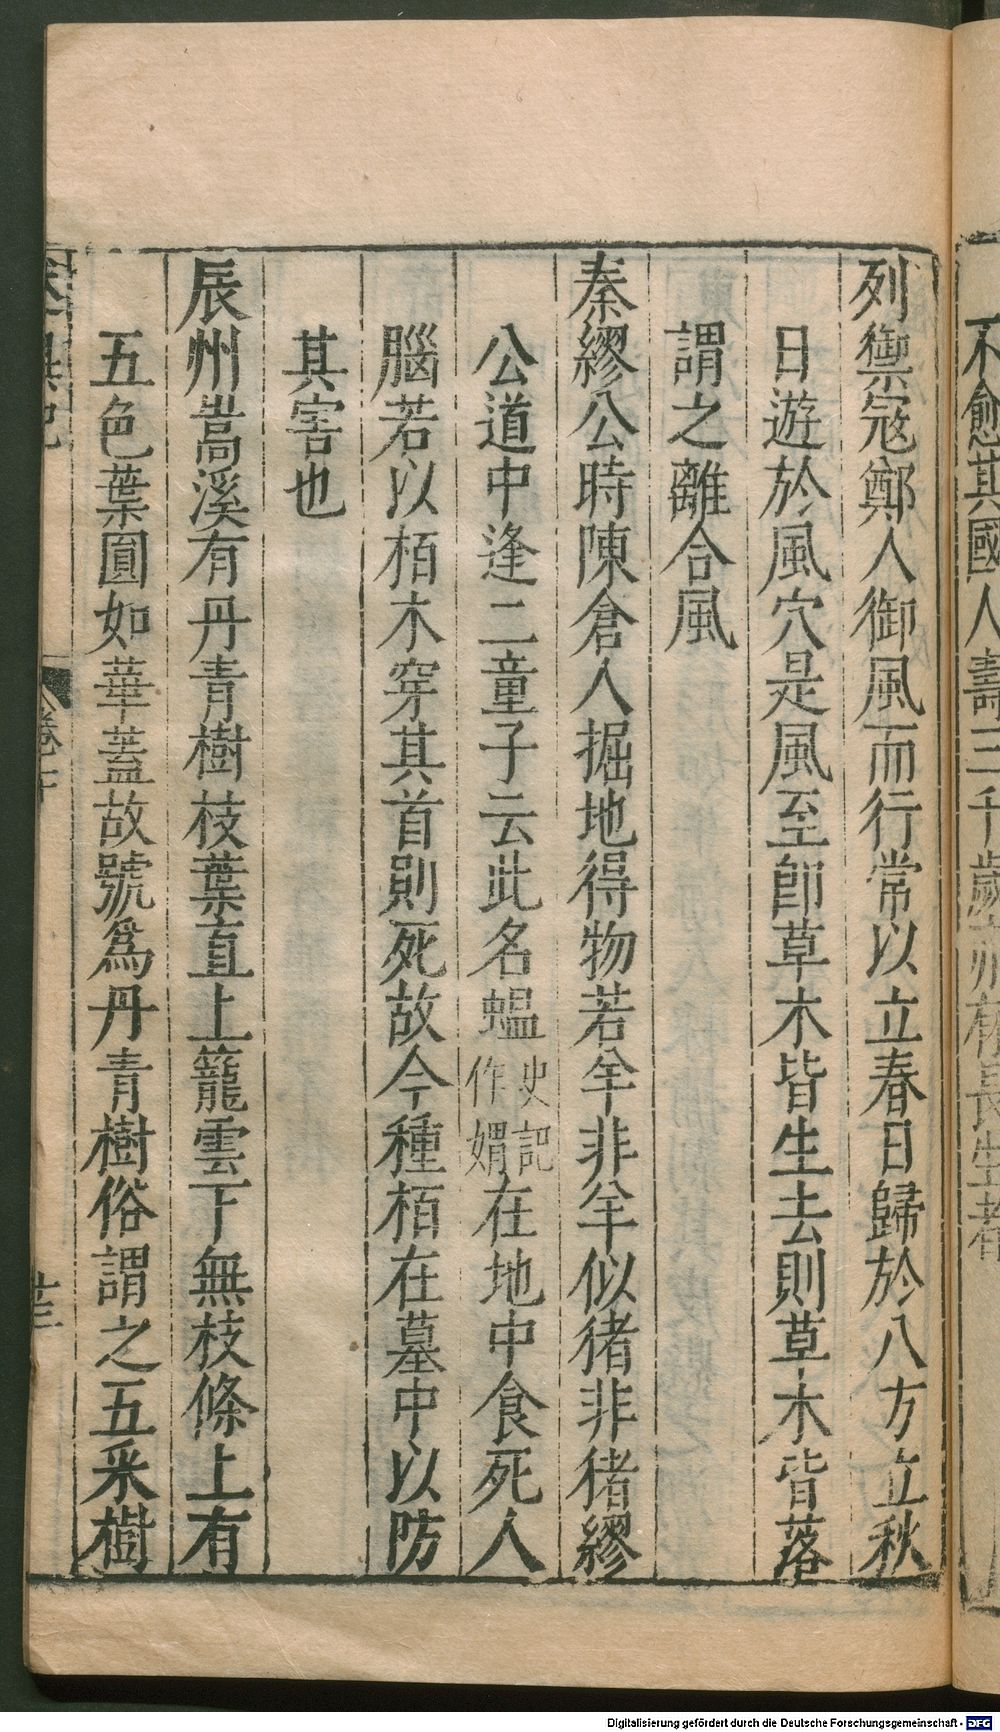 不愈其國人壽三千歲亦有長生者
列禦寇鄭人御風而行常以立春日歸於八方立秋
日遊於風穴是風至卽草木皆生去則草木皆落
謂之離合風
秦繆公時陳倉人掘地得物若羊非羊似猪非猪繆
公道中逢二童子云此名蝹史記作媦在地中食死人
腦若以栢木穿其首則死故今種栢在墓中以防
其害也
辰州嵩溪有丹青樹枝葉直上籠雲下無枝條上有
五色葉圓如華蓋故號爲丹青樹俗謂之五釆樹
卷下
廿三
Digitalisierung gefördert durch die Deutsche Forschungsgemeinschaft - DFG